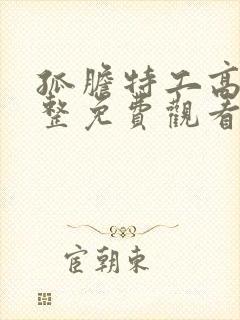 孤膽特工高
整免費觀看
宦朝東